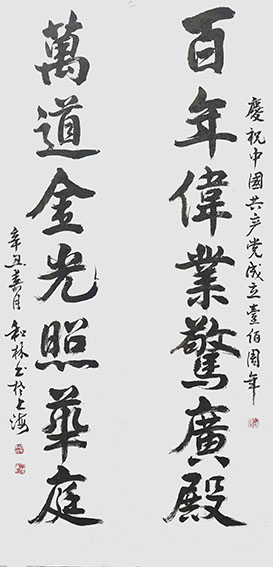 慶祝中國共产党成立壹佰周年
百年偉業驚廣殿
萬道金光照華庭
辛丑春月知林书於上海